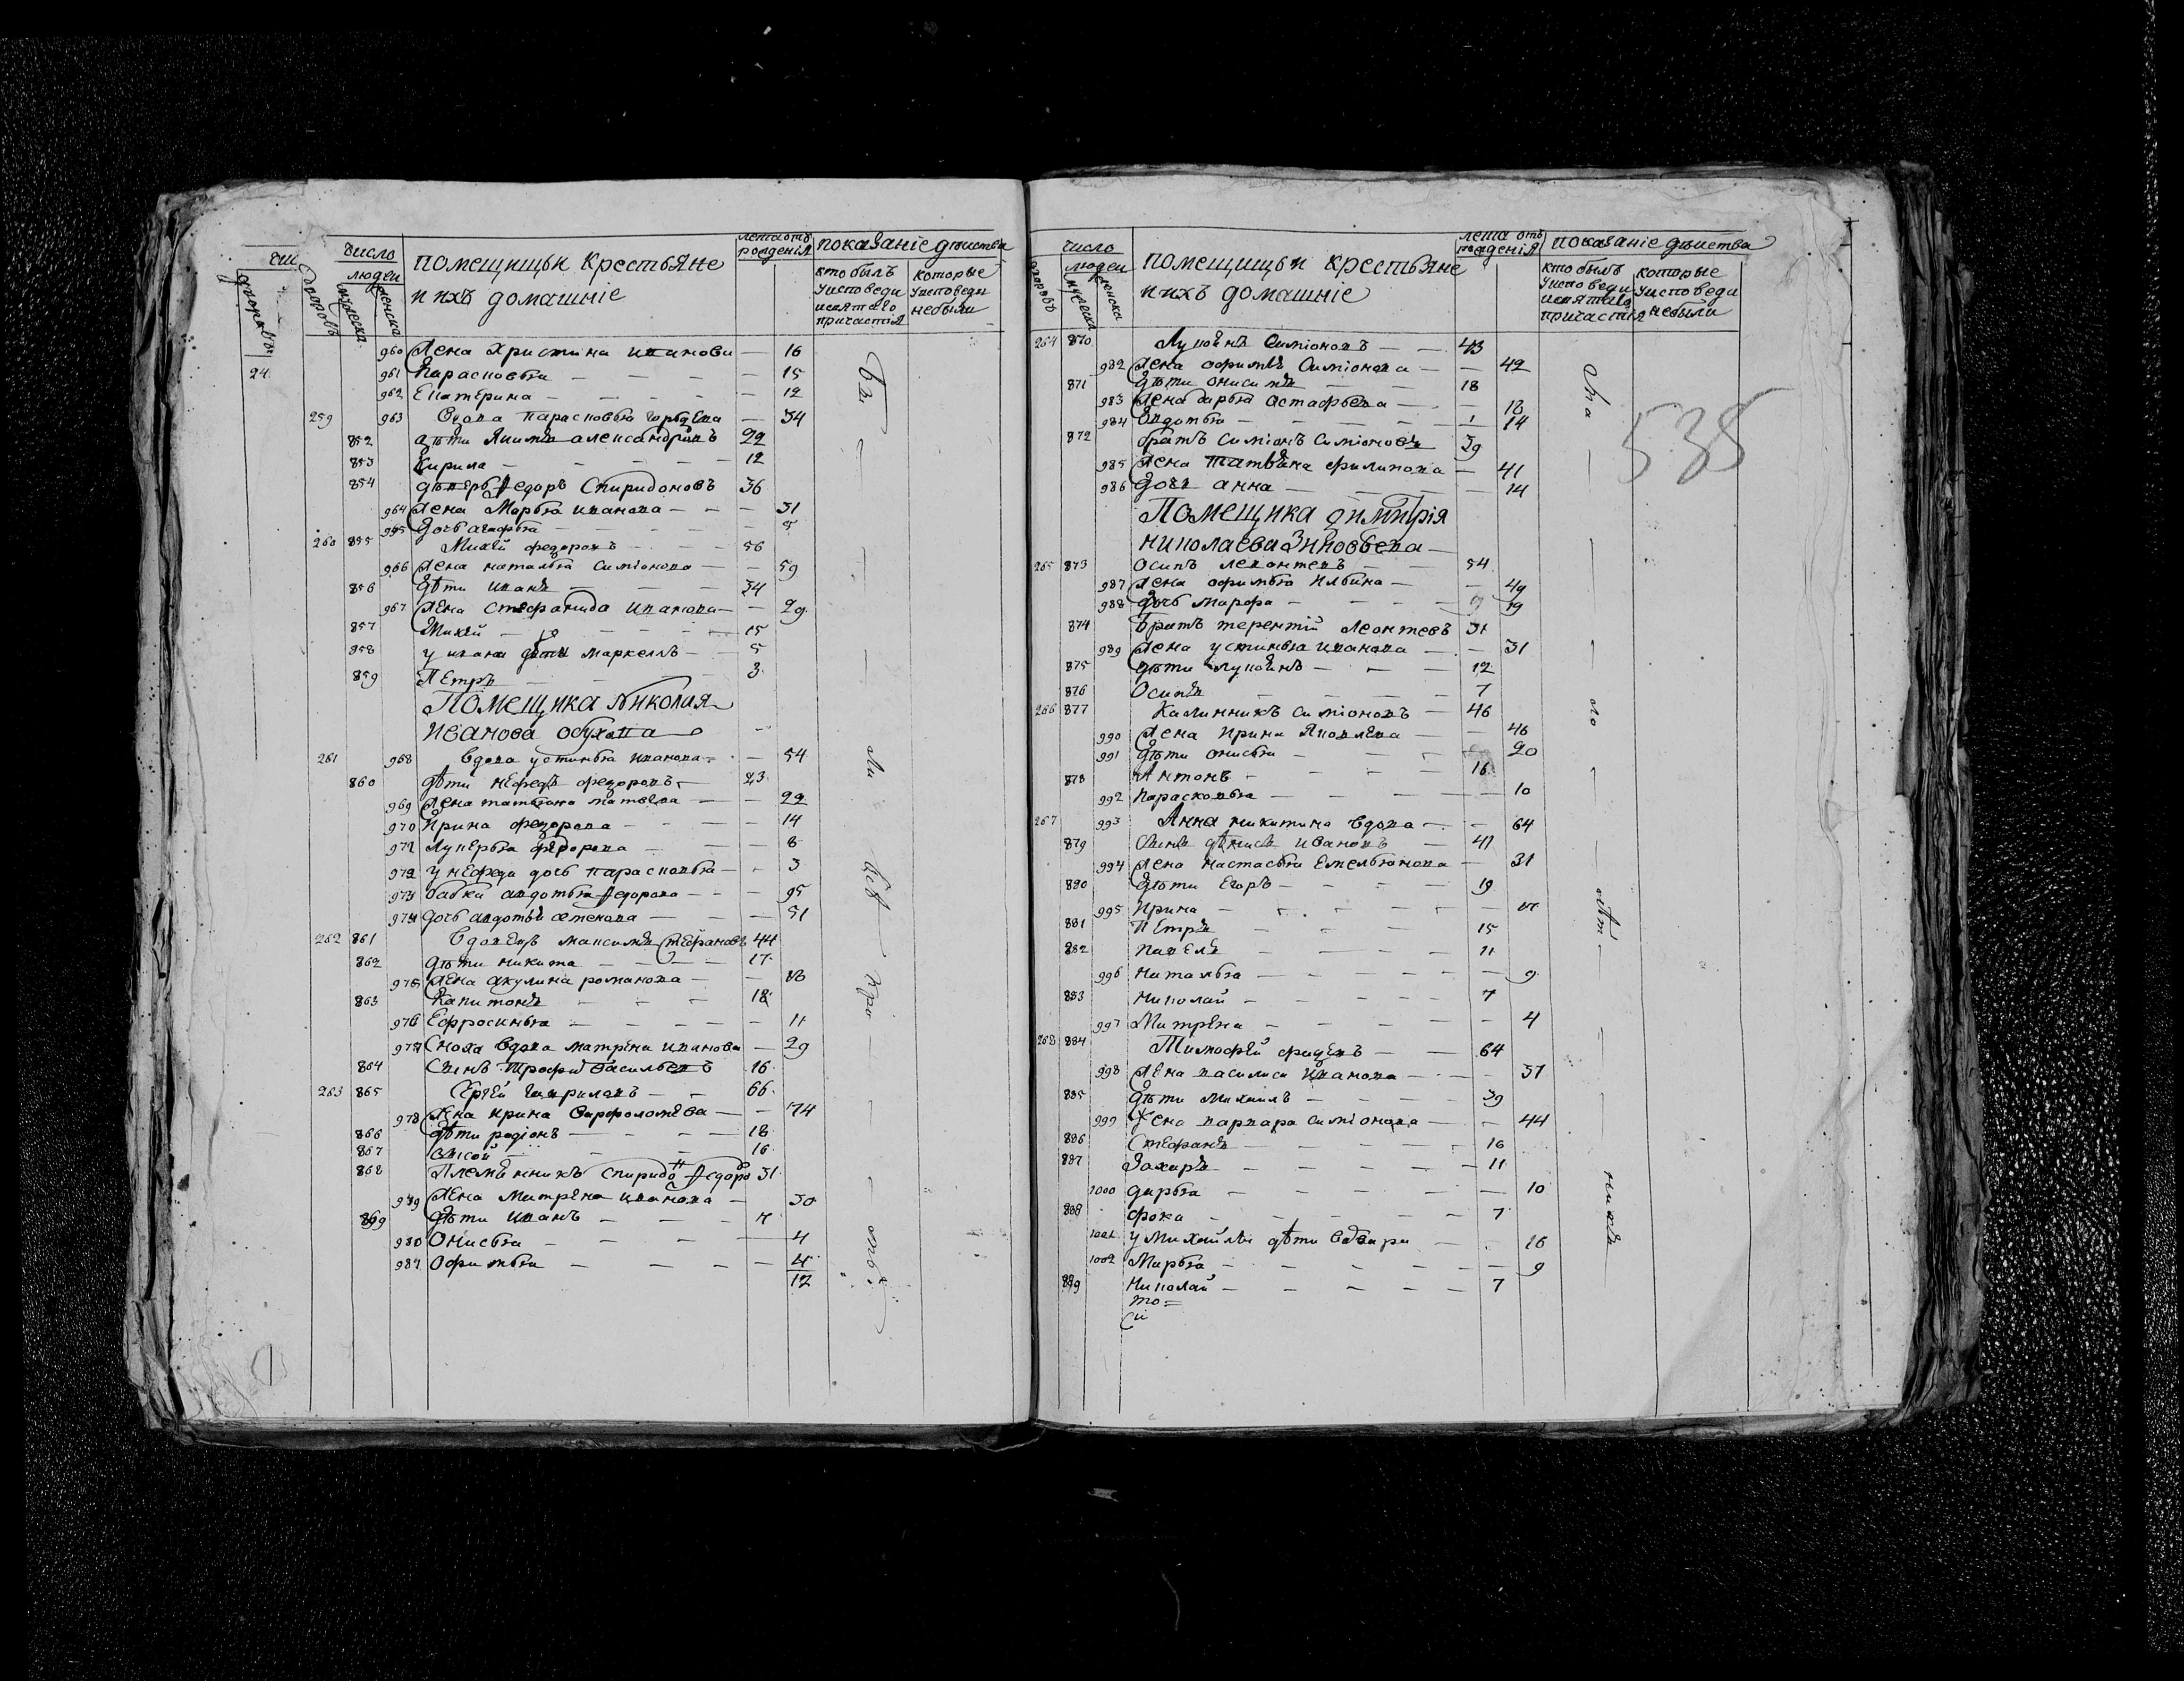 число
людеи
дворовъ
мужеска
женска
помещицьи крестьяне
и ихъ домашніе
лета отъ
рожденія
показаніе действа
кто былъ
у исповеди
и святаго
причастія
которые
у исповеди
небыли
24
960 Жена Христина иванова — 16
961 Парасковья — 15
962 Екатерина — 12
259 963 Вдова парасковья — 34
852 дѣти Якимъ александровъ 22
853 Кирила — 12
854 Федоръ Спиридоновъ 36
964 Жена Марфа иванова — 31
965 дочь агафья — 5
260 855 Михей федоровъ — 56
966 Жена наталья симіонова — 59
856 дѣти иванъ — 34
967 Жена Стефанида иванова — 29
857 Михей — 15
858 у ивана дѣти маркеллъ — 5
859 Петръ — 3
Помещика Николая
Иванова обухова
261 968 вдова устинья иванова — 54
860 дѣти нефедъ федоровъ — 23
969 Жена татьяна матвева — 22
970 Ирина федорова — 14
971 Лукерья федорова — 8
972 у нефеда дочь парасковья — 3
973 бабка авдотья федорова — 95
974 дочь авдотьи — 51
262 861 Вдовецъ максимъ стефановъ 44
862 дѣти никита — 17
975 Жена акулина романова — 18
863 Капитонъ — 18
976 Ефросинья — 11
977 Сноха вдова матрена иванова — 29
864 Сынъ Трофи васильевъ 16
263 865 Сергей гавриловъ — 66
978 Жена ирина варфоломѣева — 74
866 дѣти родіонъ — 18
867 — 16
868 Племянникъ спиридо федоро 31
979 Жена Матрена иванова — 30
869 дѣти иванъ — 7
980 Онисья — 4
981 Офимья — 4
12
число
людеи
дворовъ
мужеска
женска
помещицьи крестьяне
и ихъ домашніе
лета отъ
рожденія
показаніе действа
кто былъ
у исповеди
и святаго
причастія
которые
у исповеди
небыли
538
264 870 Лукіянъ Симіоновъ — 43
982 Жена офимья Симіонова — 42
871 дѣти онисимъ — 18
983 Жена дарья астафьева — 18
984 Авдотья — 14
872 братъ симіонъ симіоновъ 39
985 Жена татьяна филипова — 41
986 дочь анна — 14
Помещика димитрія
николаева Зиновьева
265 873 Осипъ левонтевъ — 54
987 Жена офимья ильина — 49
988 дочь марфа — 19
874 братъ терентій леонтевъ 31
989 Жена устинья иванова — 31
875 дѣти лукіянъ — 12
876 Осипъ — 7
266 877 Калинникъ симіоновъ — 46
990 Жена ирина Яковлева — 46
991 дѣти онисья — 20
878 Антонъ — 16
992 Парасковья — 10
267 993 Анна никитина вдова — 64
879 Сынъ денисъ ивановъ — 41
994 Жена настасья Емельянова — 31
880 дѣти Егоръ — 19
995 Ирина — 17
881 Петръ — 15
882 Павелъ — 11
996 Наталья — 9
883 Николай — 7
997 Матрена — 4
268 884 Тимофей — 64
998 Жена василиса иванова — 37
885 дѣти Михаилъ — 39
999 Жена варвара симіонова — 44
886 Стефанъ — 16
887 Захаръ — 11
1000 дарья — 10
888 фока — 7
1001 у михайлы дѣти — 16
1002 Марья — 9
889 Николай — 7
то=